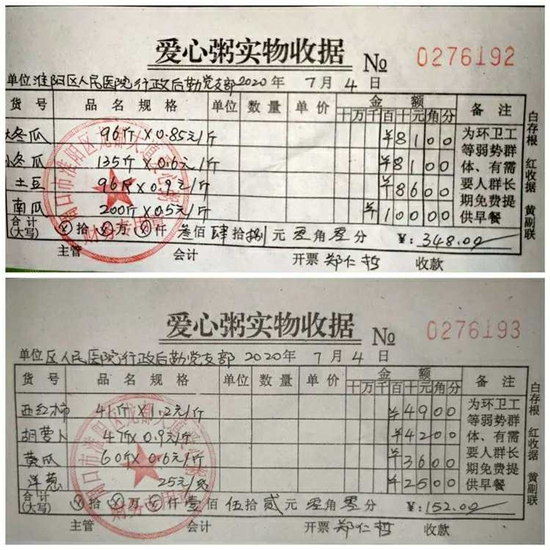 爱心粥实物收据 № 0276192
单位 淮阳区人民医院行政后勤党支部 2020年 7月 4日
货号 品名规格 单位 数量 单价 金额 备注
十万千百十元角分
冬瓜 96斤×0.85元/斤 ¥8100
冬瓜 135斤×0.6元/斤 ¥8100
土豆 96斤×0.9元/斤 ¥8600
南瓜 200斤×0.5元/斤 ¥10000
为环卫工
等弱势群
体、有需
要人群长
期免费提
供早餐
白存根 红收据 黄副联
合计(大写) ⊗拾⊗万⊗仟叁佰肆拾捌元零角零分 ¥:348.00
主管 会计 开票 郑仁哲 收款
爱心粥实物收据 № 0276193
单位 区人民医院行政后勤党支部 2020年 7月 4日
货号 品名规格 单位 数量 单价 金额 备注
十万千百十元角分
西红柿 41斤×1.2元/斤 ¥4900
胡萝卜 47斤×0.9元/斤 ¥4200
黄瓜 60斤×0.6元/斤 ¥3600
洋葱 25元/ ¥2500
为环卫工
等弱势群
体、有需
要人群长
期免费提
供早餐
白存根 红收据 黄副联
合计(大写) ⊗拾⊗万⊗仟壹佰伍拾贰元零角零分 ¥:152.00
主管 会计 开票 郑仁哲 收款